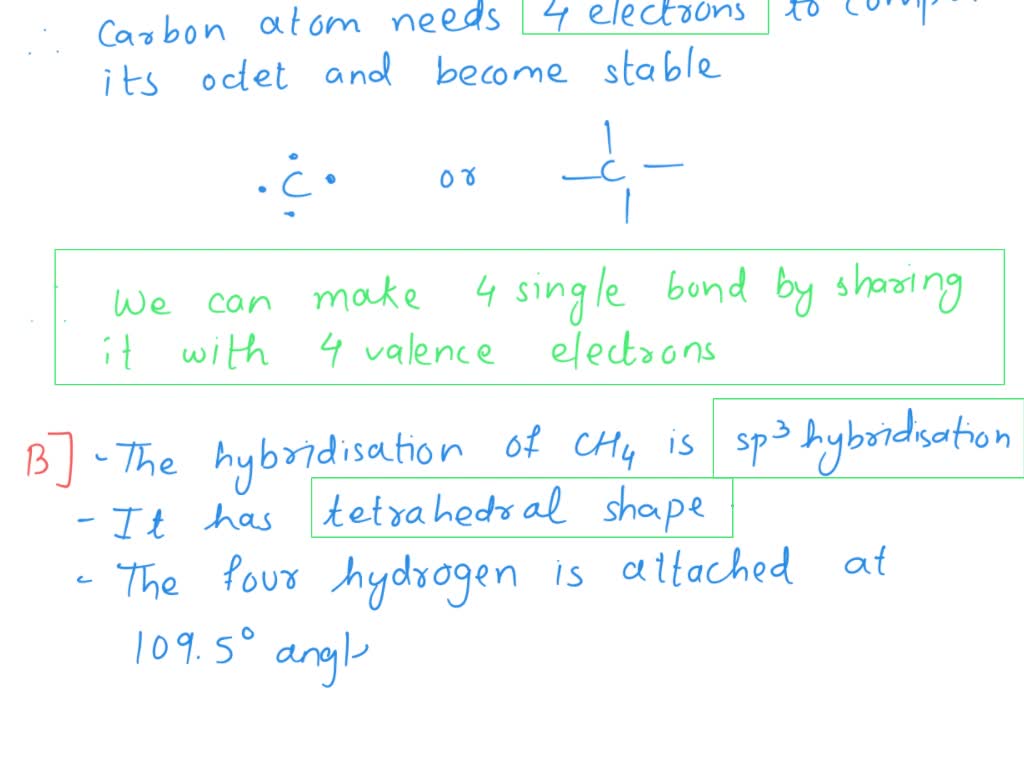 ∴ Carbon atom needs 4 electrons to
its octet and become stable
C or C
∴ We can make 4 single bond by sharing
it with 4 valence electrons
B] - The hybridisation of CH4 is sp³ hybridisation
- It has tetrahedral shape
- The four hydrogen is attached at
109.5° angl